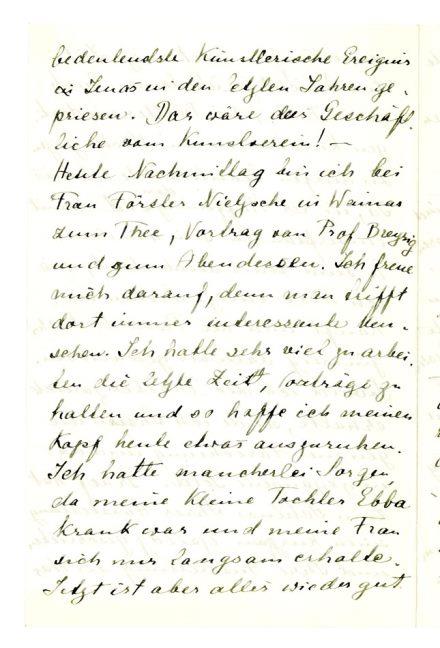 bedeutendste künstlerische Ereignis
in Jenas in den letzten Jahren ge-
priesen. Das wäre das Geschäft-
liche vom Kunstverein! –
Heute Nachmittag bin ich bei
Frau Förster Nietzsche in Weimar
zum Thee, Vortrag von Prof Breysig
und zum Abendessen. Ich freue
mich darauf, denn man trifft
dort immer interessante Men-
schen. Ich hatte sehr viel zu arbei-
ten die letzte Zeit, Vorträge zu
halten und so hoffe ich meinen
Kopf heute etwas auszuruhen.
Ich hatte mancherlei Sorgen,
da meine kleine Tochter Ebba
krank war und meine Frau
sich nur langsam erholte.
Jetzt ist aber alles wieder gut.